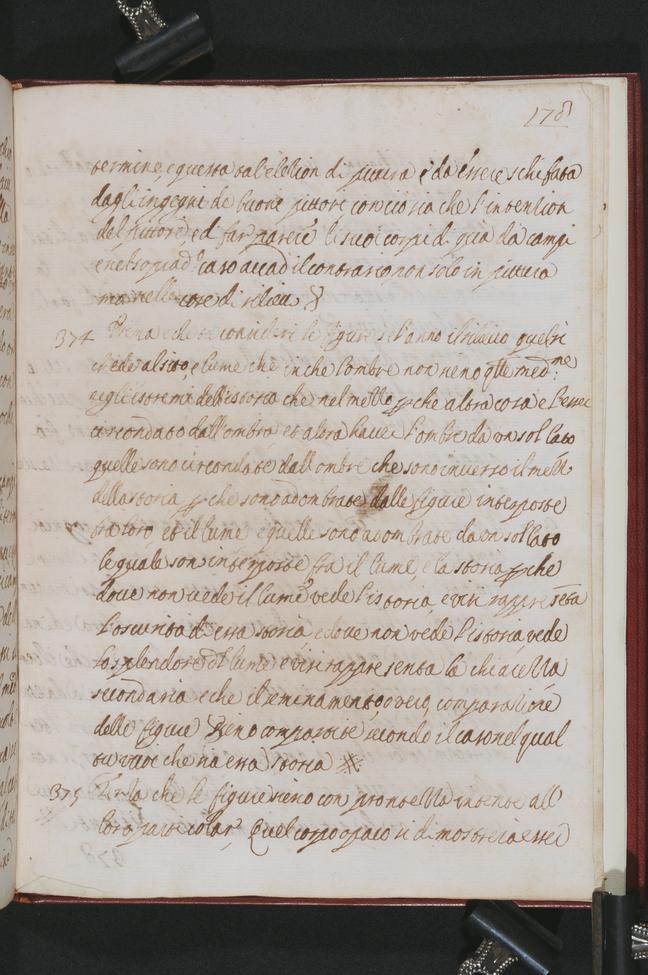 178
termine, e questa tal' eletion di pittura è da essere schifata
dagli ingegni de buone pittore conciosia che l'intention
del pittore, ed far parere li suoi corpi di qua da campi
e nel sopiad.º caso accad il contrario non solo in pittura
ma nelle cose di rilieu
374 Prima e che se consideri le figure s'hanno il rilieuo quel ri
chede al sito, e lume che
 che l'ombre non sieno q̃lle med.me
negli istremi dell'istoria che nel mezzo ꝑche altra cosa e l'esser
circondato dall'ombra et altra haue l'ombre da un sol lato
quelle sono circondate dall ombre che sono inuerso il mezzo
della storia ꝑche sono adombrate dalle figure interposte
tra loro et il lume e quelle sono adombrate da un sol lato
le quale son interposte fra il lume, e la storia ꝑche
doue non uede il lume uede l'istoria, e vi si rappresẽta
l'oscurita di essa storia e doue non uede l'istoria, uede
lo splendore d'l lume e vi si rappresenta la chiarezza
secondaria e che il seminamento, o uero comparatione
delle figure sieno compartite secondo il caso nel qual
tu vuoi che sia essa storia
375 Terza che le figure sieno con prontezza intente all
loro particolar, Quel corpo opaco si dimostrera esser